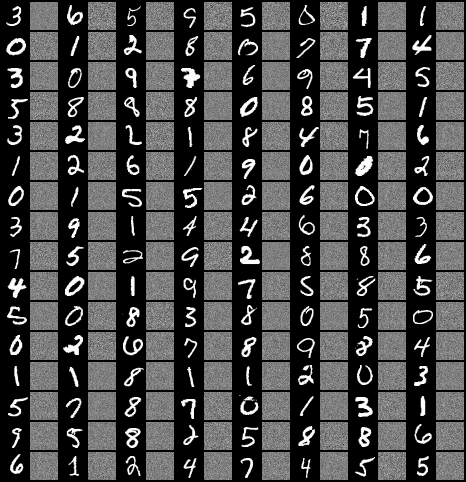 3 6 5 9 5 0 1 1
0 1 2 8 0 7 7 4
3 0 9 7 6 9 4 5
5 8 8 8 0 8 5 1
3 2 2 1 8 4 7 6
1 2 6 1 9 0 0 2
0 1 5 5 2 6 0 0
3 9 1 4 4 6 3 3
7 5 2 9 2 8 8 6
4 0 1 9 7 5 8 5
5 0 8 3 8 0 5 0
0 2 6 7 8 9 8 4
1 1 8 1 1 2 0 3
5 7 8 7 0 1 3 1
9 5 8 2 5 8 8 6
6 1 2 4 7 4 5 5